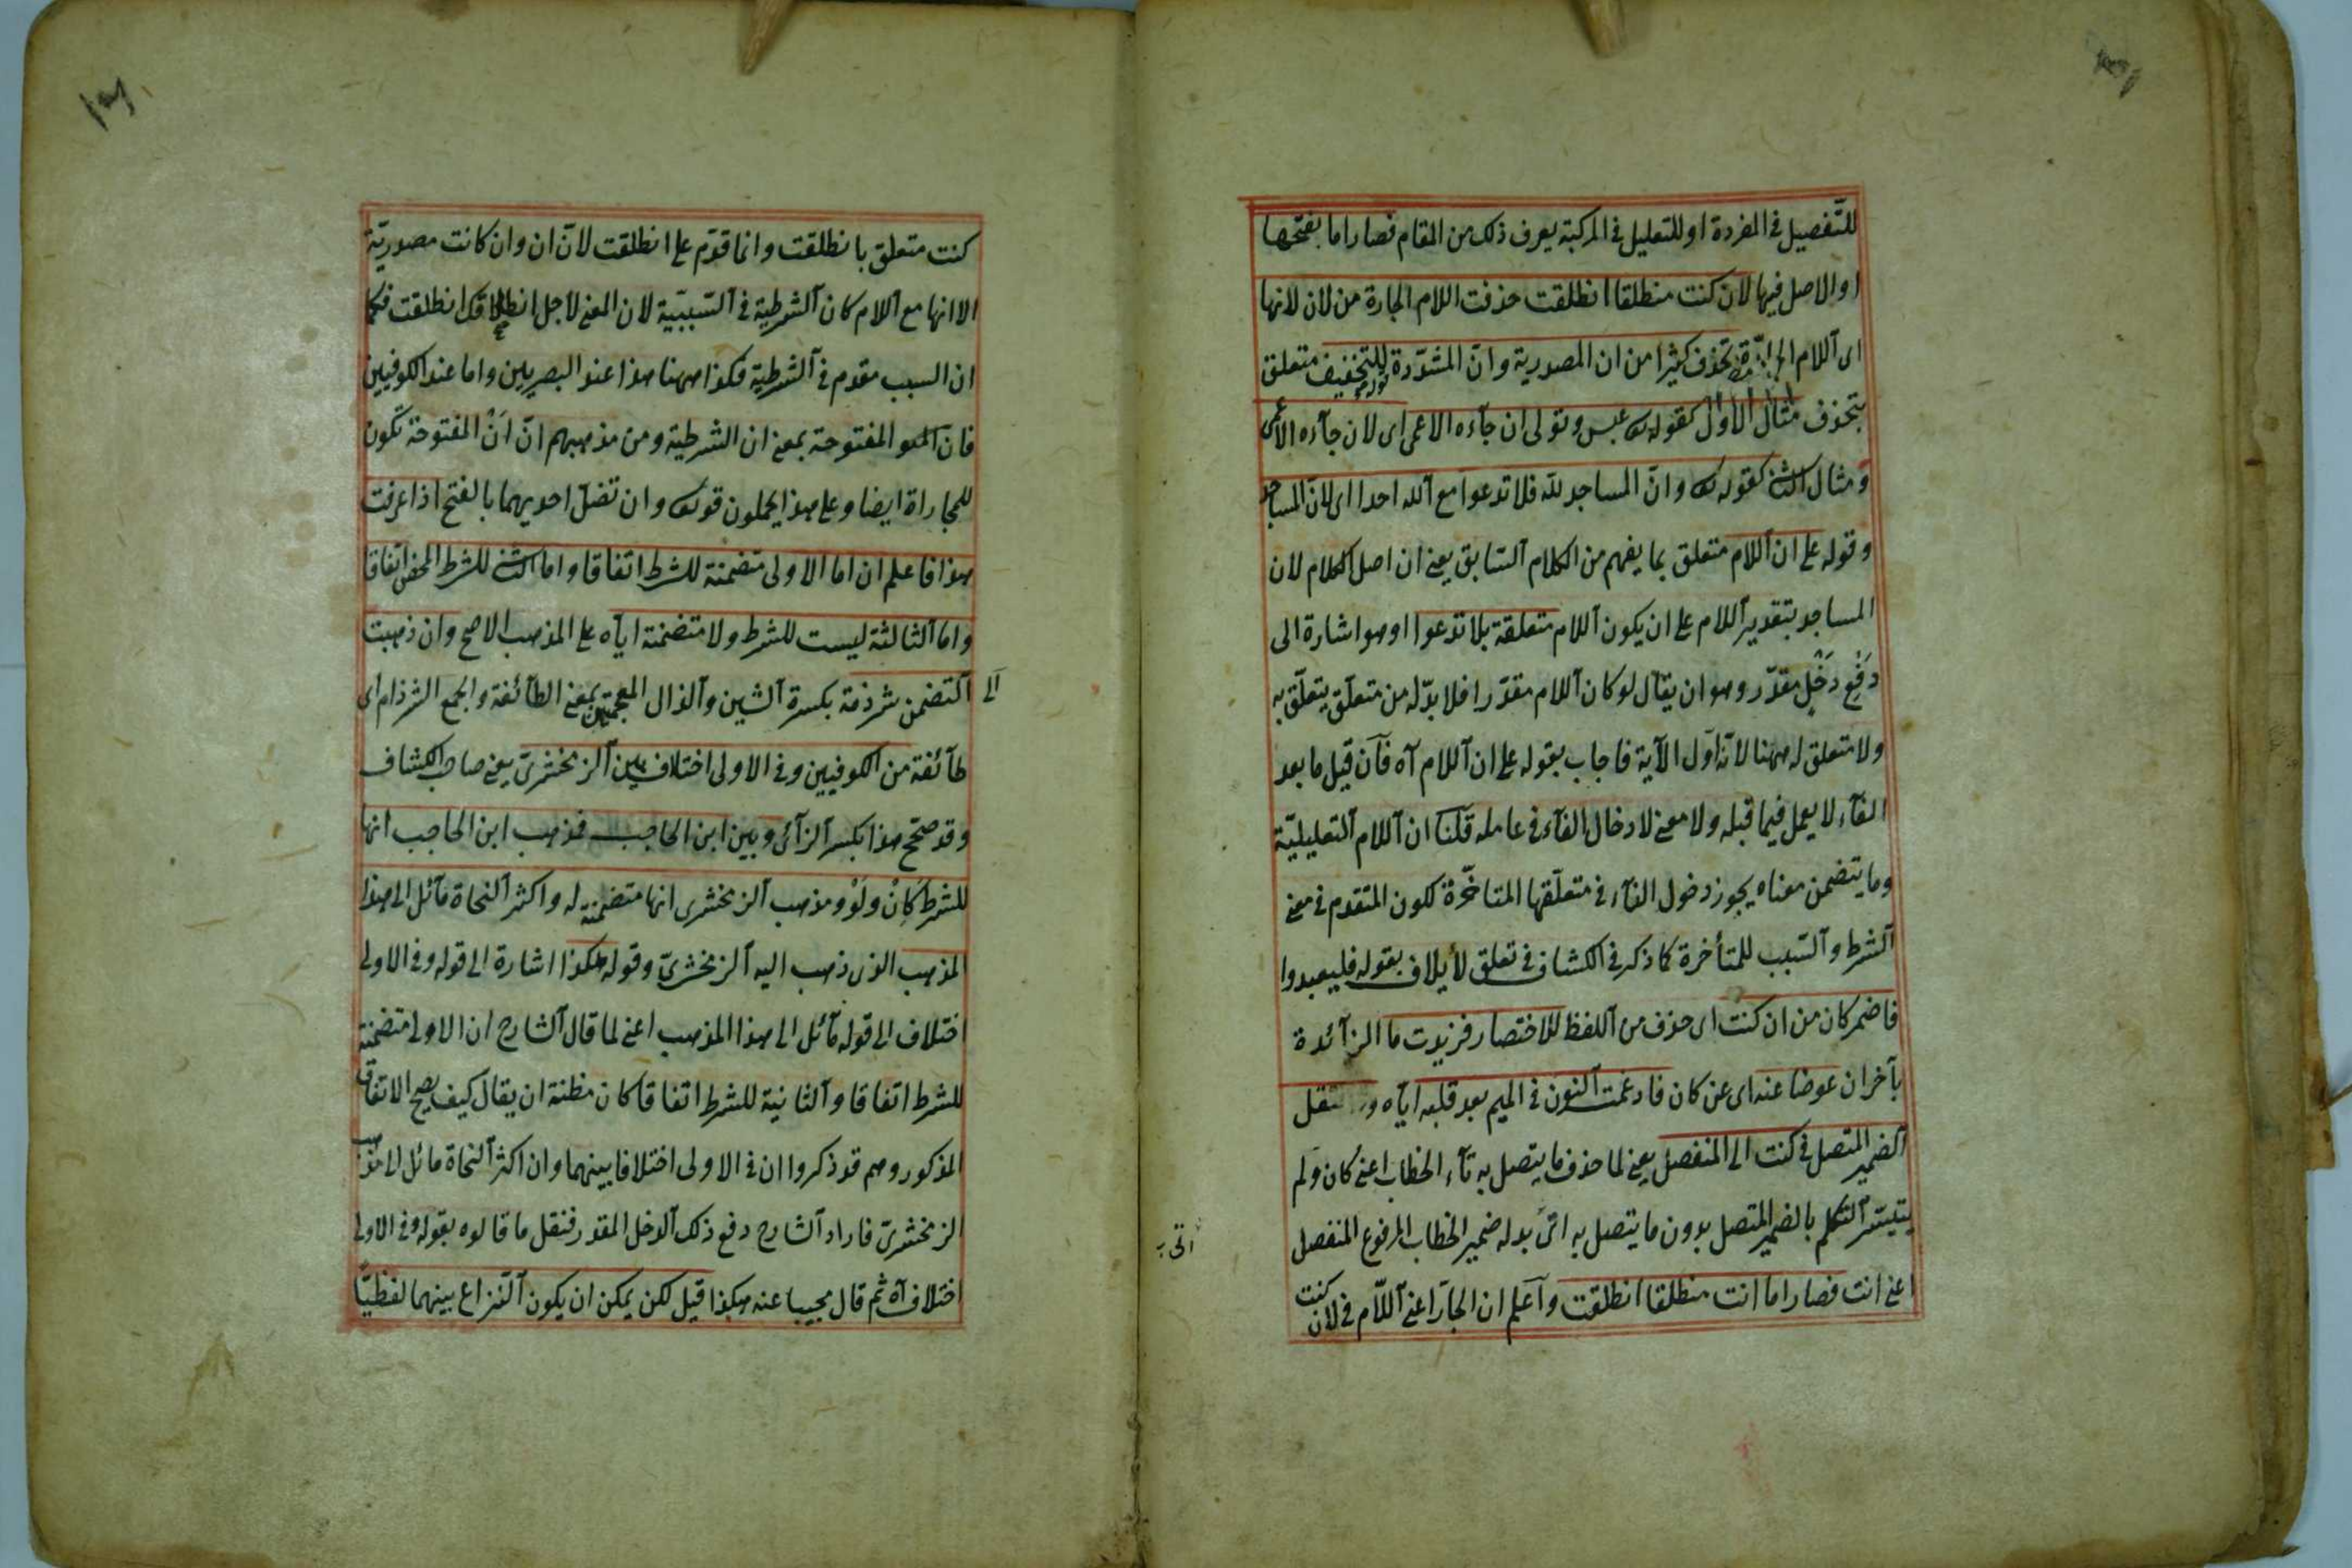 للتّفصيل في المفردة او للتعليل في المركبة يعرف ذلك من المقام فصار اما بفتحها
او الاصل فيها لان كنت منطلقا انطلقت حذفت اللام الجارة من لان لانها
اى اللام الجارّة تحذف كثيرا من ان المصدرية وانّ المشدّدة للتخفيف متعلق
بتحذف مثال الاول كقوله تع عبس وتولى ان جآءه الاعمى اى لان جآءه الاعمى
ومثال الثانى كقوله تع وانّ المساجد للّه فلا تدعوا مع اللّه احدا اى لانّ المساجد
وقوله على ان اللام متعلق بما يفهم من الكلام السّابق يعنى ان اصل الكلام لان
المساجد بتقدير اللام على ان يكون اللام متعلقة بلا تدعوا او هو اشارة الى
دَفْعِ دَخْلٍ مقدّر وهو ان يقال لو كان اللام مقدّرا فلا بدّ له من متعلّق يتعلّق به
ولا متعلق له ههنا لانّه اوّل الآية فاجاب بقوله على ان اللام آه فان قيل ما بعد
الفآء لا يعمل فيما قبله ولا معنى لادخال الفآء فى عامله قلنا ان اللام التعليليّة
وما يتضمن معناه يجوز دخول الفآء فى متعلّقها المتاخّرة لكون المتقدم فى معنى
الشرط والسّبب للمتأخرة كما ذكر فى الكشاف فى تعلق لأيلاف بقوله فليعبدوا
فاضمر كان من ان كنت اى حذف من اللفظ للاختصار فزيدت ما الزآئدة
بآخر ان عوضا عنه اى عن كان فادغمت النون فى الميم بعد قلبه ايّاه و تنقل
الضمير المتصل فى كنت الى المنفصل يعنى لما حذف ما يتصل به تآء الخطاب اعنى كان ولم
يتيسّر التكلم بالضمير المتصل بدون ما يتصل به اتى بدله ضمير الخطاب المرفوع المنفصل
اعنى انت فصار اما انت منطلقا انطلقت واعلم ان الجارّ اعنى اللّام فى لان كنت
كنت متعلق بانطلقت وانما قدّم على انطلقت لانّ ان وان كانت مصدريّة
الا انها مع اللام كان الشرطيّة فى السّببيّة لان المعنى لاجل انطلاقك انطلقت فكما
ان السبب مقدم فى الشرطيّة فكذا ههنا هذا عند البصريين واما عند الكوفيين
فان المفتوحة بمعنى ان الشرطية ومن مذهبهم انّ اَنْ المفتوحة تكون
للمجاراة ايضا وعلى هذا يحملون قوله تع وان تضلّ احديهما بالفتح اذا عرفت
هذا فاعلم ان اما الاولى متضمنة للشرط اتفاقا واما الثانى للشرط المحض اتفاقا
واما الثالثة ليست للشرط ولا متضمنة ايّاه على المذهب الاصح وان ذهبت
الى التضمن شرذمة بكسرة الشين والذال المعجمتين بمعنى الطآئفة والجمع الشرذام اى
طآئفة من الكوفيين وفى الاولى اختلاف بين الزمخشرىّ يعنى صاحب الكشاف
وقد صحّح هذا بكسر الزآئى وبين ابن الحاجب فذهب ابن الحاجب انها
للشرط كَاِنْ ولَوْ ومذهب الزمخشرى انها متضمنة له واكثر النحاة مآئل الى هذا
المذهب الذى ذهب اليه الزمخشرىّ وقوله هكذا اشارة الى قوله وفى الاولى
اختلاف الى قوله مآئل الى هذا المذهب اعنى لما قال الشارح ان الاولى متضمنة
للشرط اتفاقا والثانية للشرط اتفاقا كان مظنة ان يقال كيف يصحّ الاتفاق
المذكور وهم قد ذكروا ان فى الاولى اختلافا بينهما وان اكثر النحاة مائل الى مذهب
الزمخشرىّ فاراد الشارح دفع ذلك الدخل المقدر فنقل ما قالوه بقوله وفى الاولى
اختلاف آه ثم قال مجيبا عنه هكذا قيل لكن يمكن ان يكون النّزاع بينهما لفظيّا